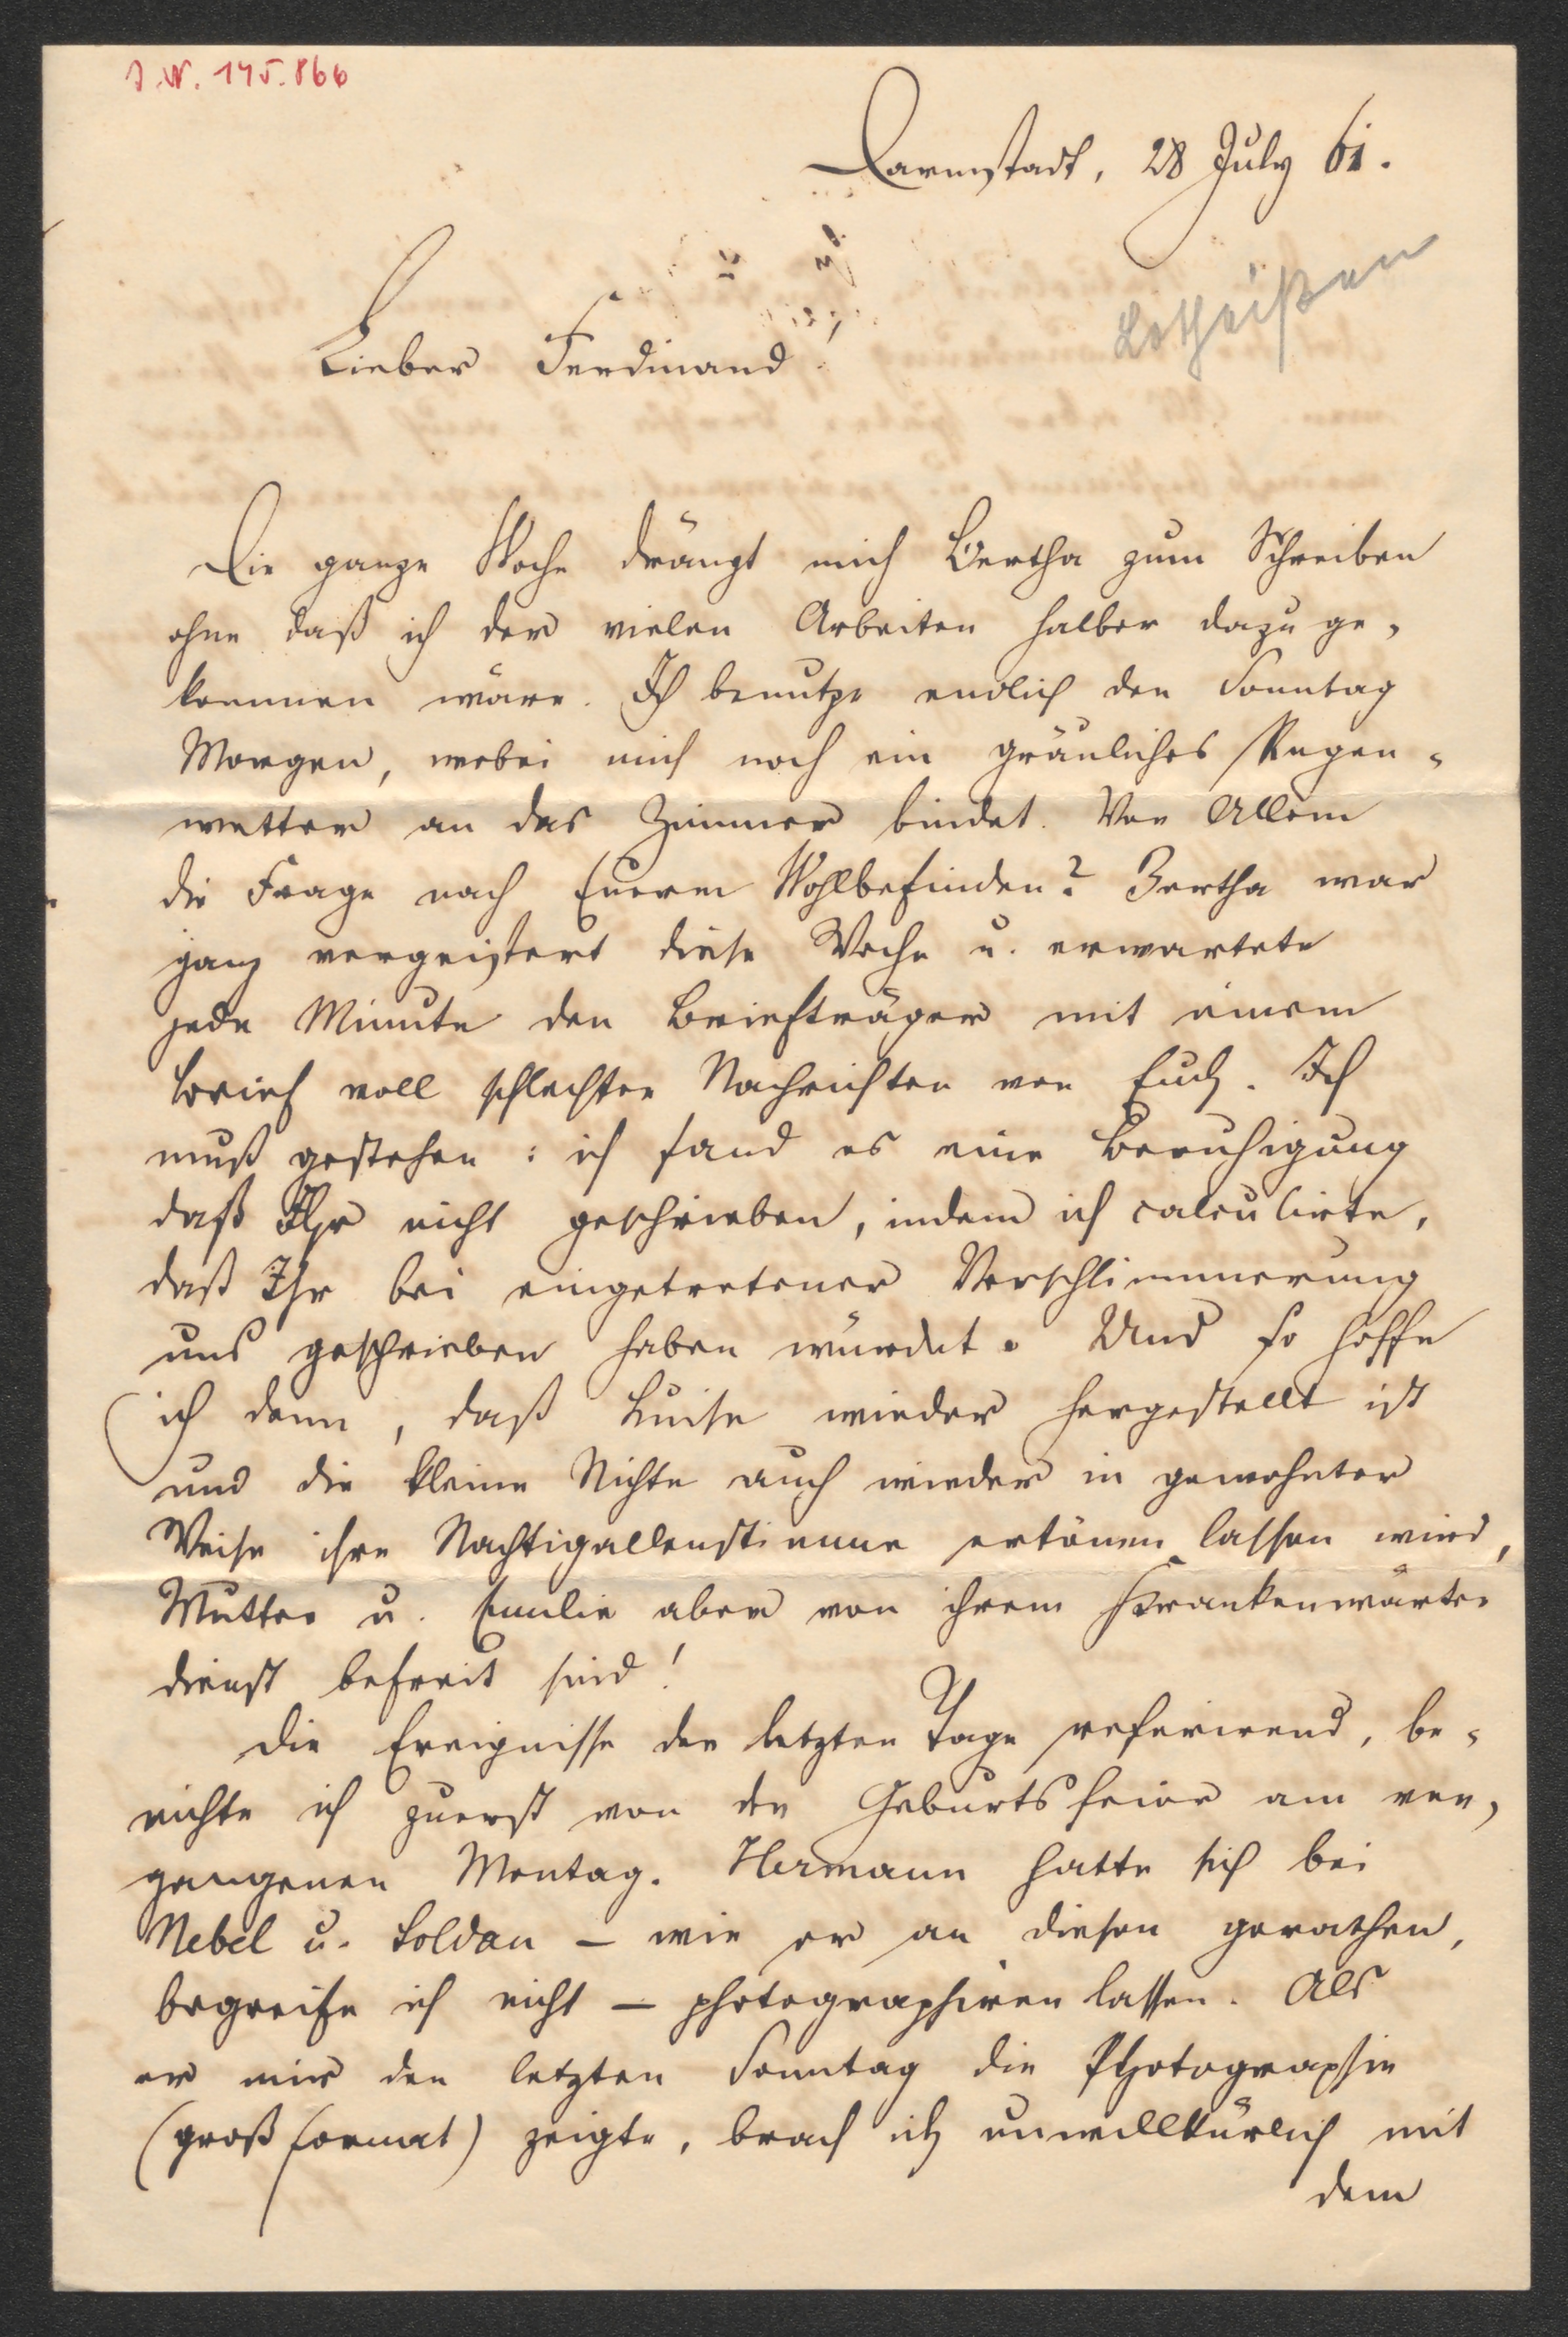 J. N. 145.866
Darmstadt, 28 July 61.
Lotheißen
Lieber Ferdinand!
Die ganze Woche drängt mich Bertha zum Schreiben
ohne daß ich der vielen Arbeiten halber dazu ge-
kommen wäre. Ich benutze endlich den Sonntag
Morgen, wobei mich noch ein gräuliches Regen-
wetter an das Zimmer bindet. Vor Allem
die Frage nach Euerm Wohlbefinden? Bertha war
ganz vergeistert diese Woche u. erwartete
jede Minute den Briefträger mit einem
Brief voll schlechter Nachrichten von Euch. Ich
muß gestehen: ich fand es eine Beruhigung
daß Ihr nicht geschrieben, indem ich calculirte,
daß Ihr bei eingetretener Verschlimmerung
uns geschrieben haben würdet. Und so hoffe
ich denn, daß Luise wieder hergestellt ist
und die kleine Nichte auch wieder in gewohnter
Weise ihre Nachtigallenstimme ertönen lassen wird,
Mutter u. Emilie aber von ihrem Krankenwärter
dienst befreit sind!
Die Ereignisse der letzten Tage referirend, be-
richte ich zuerst von der Geburtsfeier am ver-
gangenen Montag. Hermann hatte sich bei
Nebel u. Soldan – wie er an diesen gerathen,
begreife ich nicht – photographiren lassen. Als
er mir den letzten Sonntag die Photographie
(groß format) zeigte, brach ich unwillkürlich mit
dem